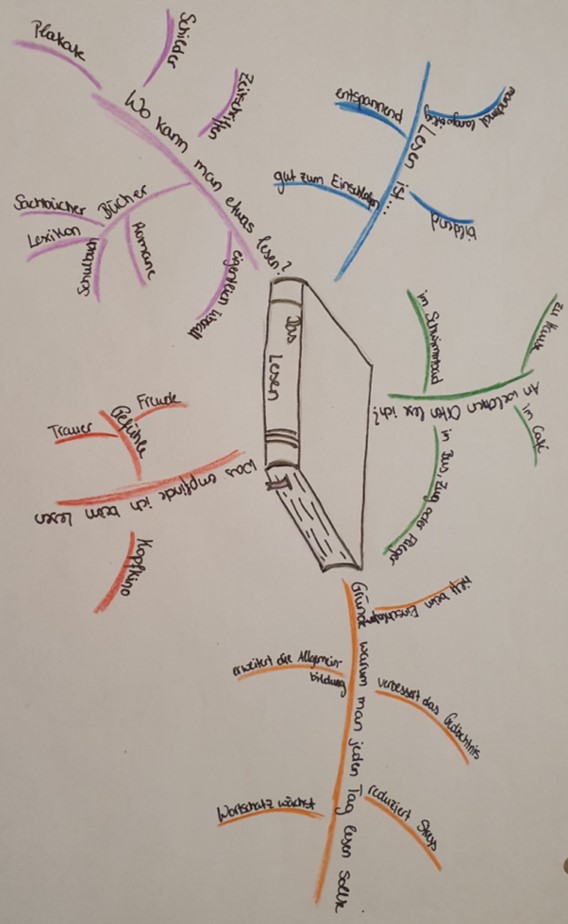 Das
Lesen
Wo kann man etwas lesen?
Plakate
Schilder
Zeitschriften
Bücher
Sachbücher
Lexikon
Schulbuch
Romane
eigentlich überall
Lesen ist...
entspannend
manchmal langweilig
gut zum Einschlafen
bildend
An welchen Orten lese ich?
zu Hause
im Schwimmbad
im Café
in Bus, Zug oder Flieger
Was empfinde ich beim lesen
Gefühle
Freude
Trauer
Kopfkino
Gründe warum man jeden Tag lesen sollte
hilft beim Einschlafen
erweitert die Allgemein
bildung
verbessert das Gedächtnis
Wortschatz wächst
reduziert Stress